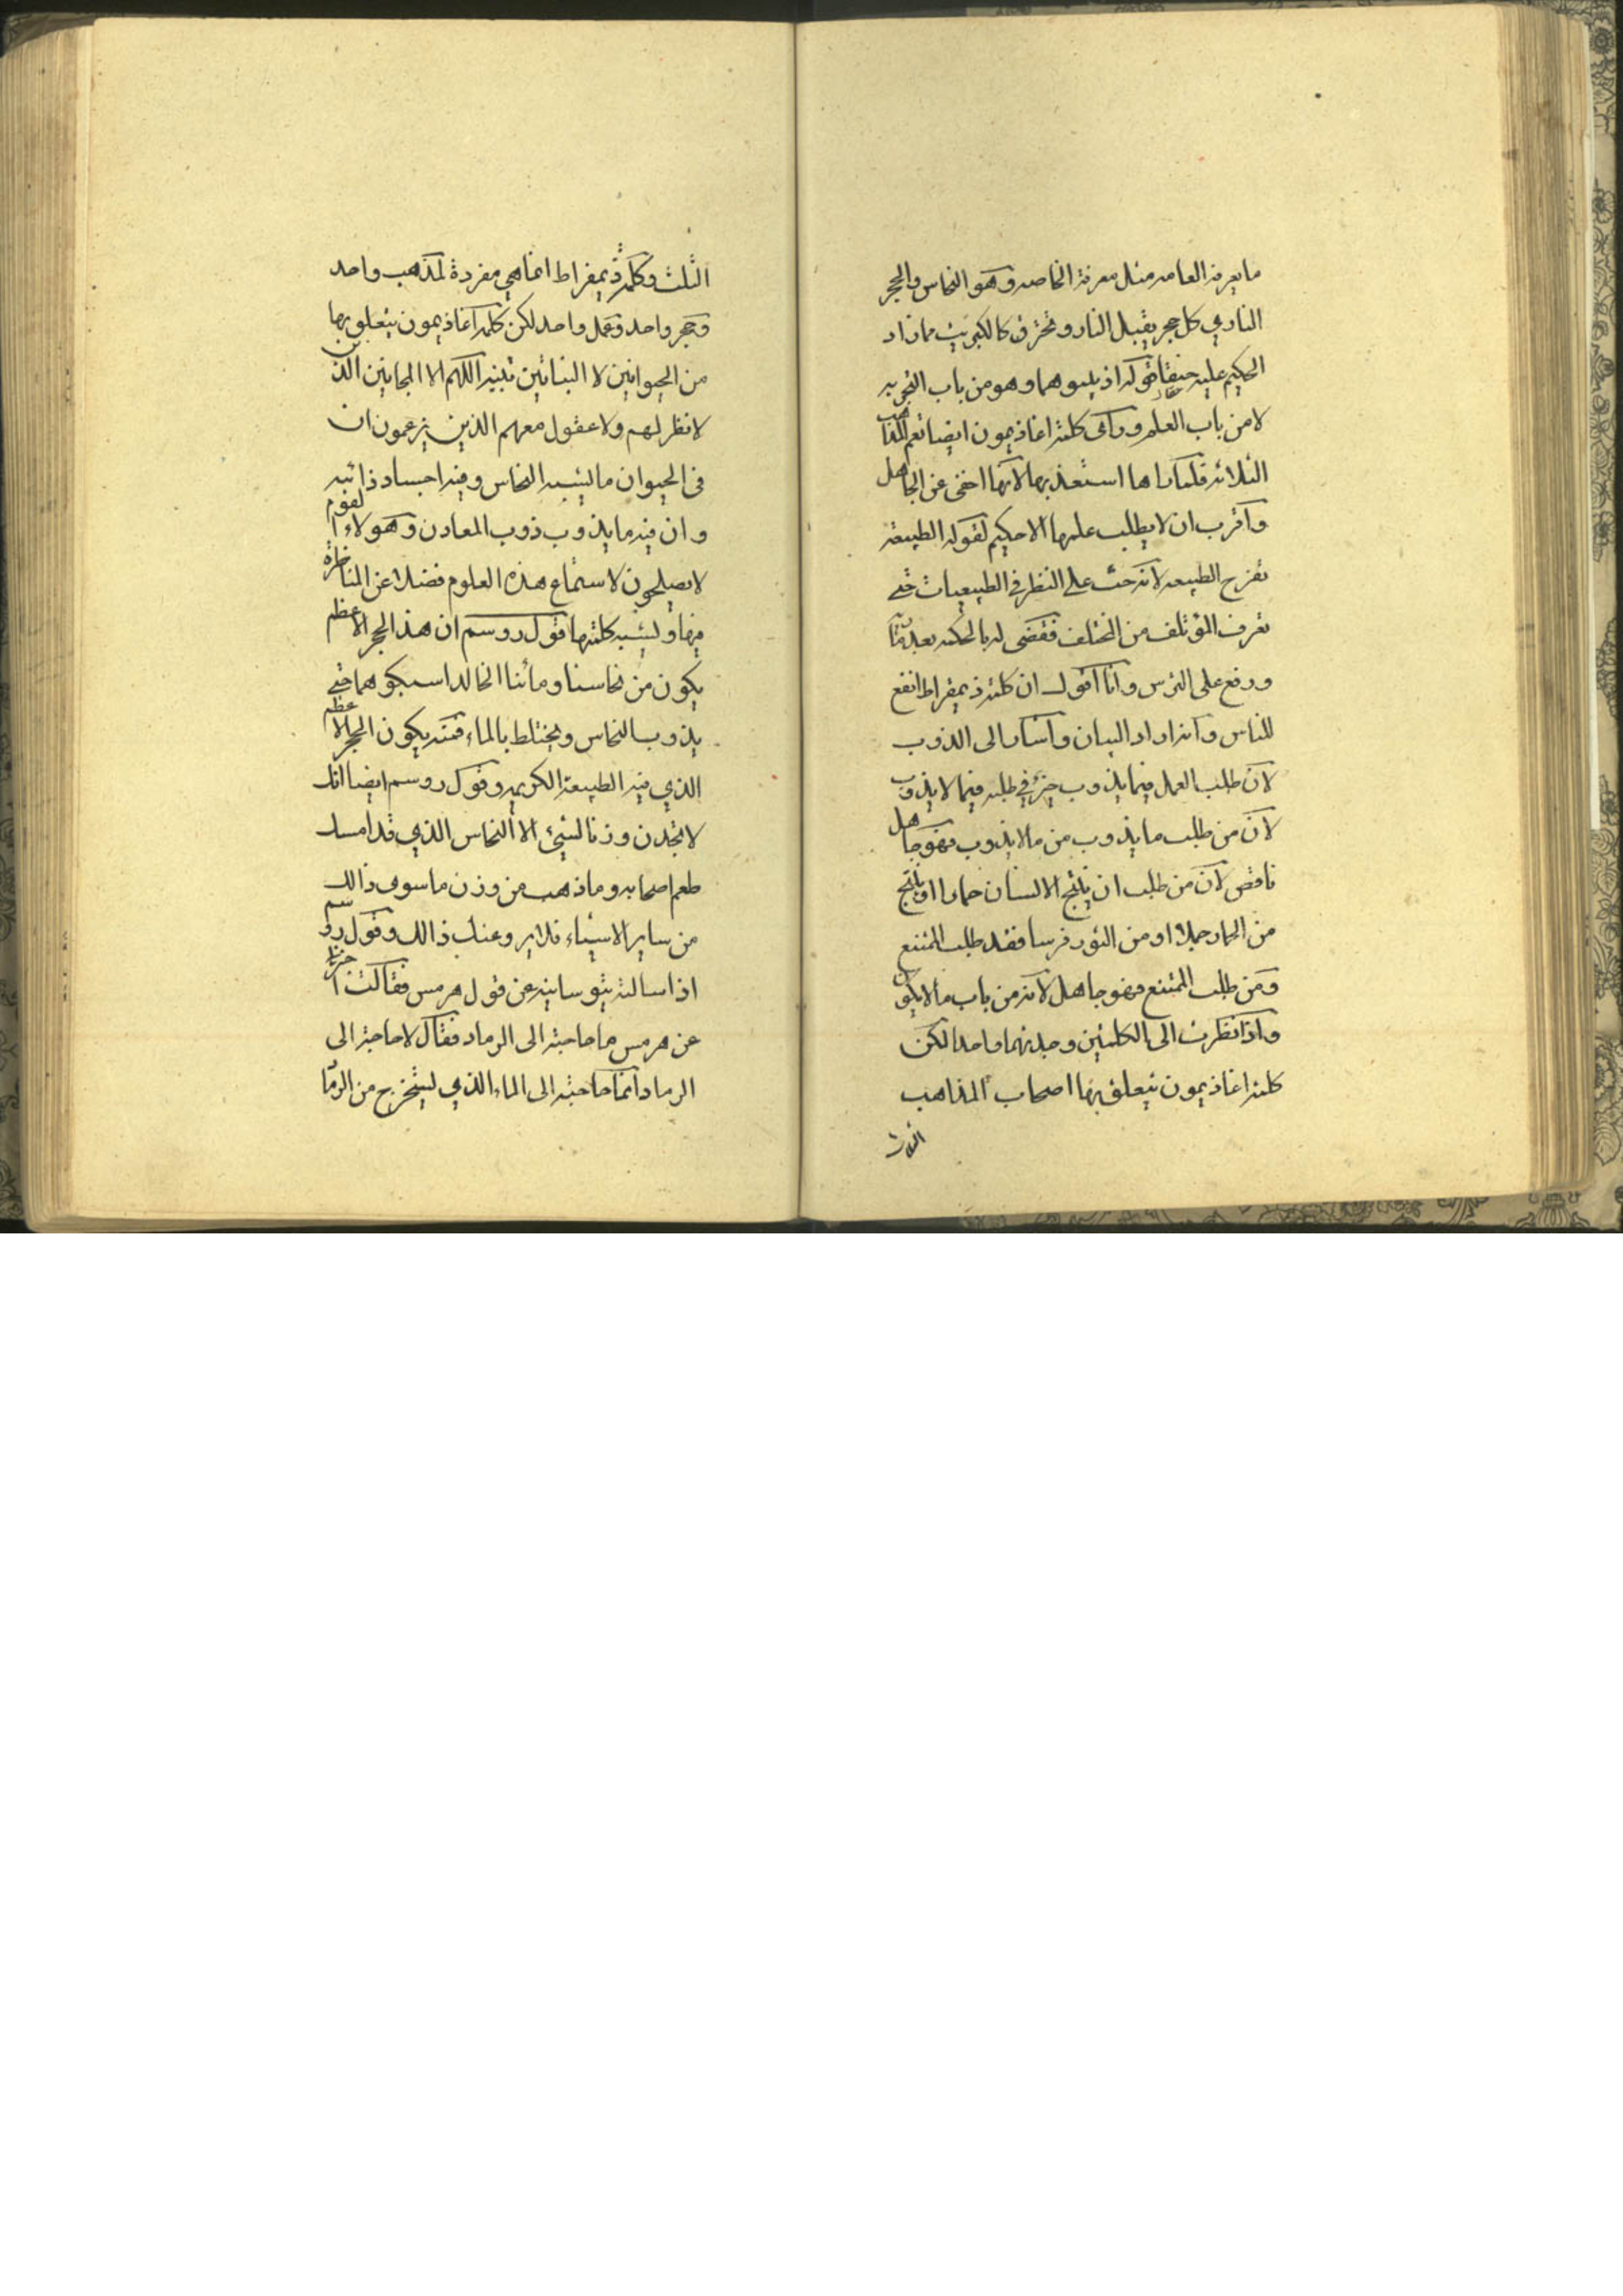 ما يعرفه العامه مثل معرفة الخاصه وهو النحاس والحجر
الناري كل حجر يقبل النار و تحترق كالكبريت مما زاد
الحكيم عليه قوله اذ يليوهما وهو من باب التجربه
لا من باب العلم ورأى كلمة اغاذيمون ايضا تعم المذاهب
الثلاثه فلما راها استعذ بها لانها اخفى عن الجاهل
واقرب ان لا يطلب علمها الا حكيم لقوله الطبيعة
تفرح الطبيعه لانه حث على النظر في الطبيعيات حتى
تعرف المؤتلف من المختلف فقضى له بالحكمه بعد
ورفع على الترس وانا اقول ان كلمة ذيمقراط انفع
للناس وانه اراد البيان واشار الى الذوب
لان طلب العمل فيما يذوب خير في طلبه فيما لا يذوب
لان من طلب ما يذوب من ما لا يذوب فهو جاهل
ناقص لان من طلب ان ينتج الانسان حمارا او ينتج
من الحمار جملا او من الثور فرسا فقد طلب الممتنع
ومن طلب الممتنع فهو جاهل لانه من باب ما لا يكون
واذا نظرت الى الكلمتين وجدتهما واحدا لكن
كلمة اغاذيمون يتعلق بها اصحاب المذاهب
الثلاث
الثلث وكلمة ذيمقراط انما هي مفردة لمذهب واحد
وحجر واحد وعمل واحد لكن كلمة اغاذيمون يتعلق بها
من الحيوانين لا النباتين اللهم الا المجانين الذين
لا نظر لهم ولا عقول معهم الذين يزعمون ان
فى الحيوان ما يشبه النحاس وفيه اجساد ذائبه
وان فيه ما يذوب ذوب المعادن وهولاء القوم
لا يصلحون لاستماع هذه العلوم فضلا عن المناظرة
فيها ويشبه كلمتها قول روسم ان هذا الحجر الاعظم
يكون من نحاسنا ومائنا الخالد اسبكوهما حتى
يذوب النحاس ويختلط بالماء فمنه يكون الحجر الاعظم
الذي فيه الطبيعة الكريمه وقول روسم ايضا انك
لا تجدن وزنا لشيء الا النحاس الذي قد امسك
طعم اصحابه وما ذهب من وزن ما سوى ذالك
من ساير الاشياء فلا يروعنك ذالك وقول روسم
اذا سالته ثيوسابيه عن قول هرمس فقالت اخبرنا
عن هرمس ما حاجته الى الرماد فقال لا حاجة الى
الرماد انما حاجته الى الماء الذي يستخرج من الرماد